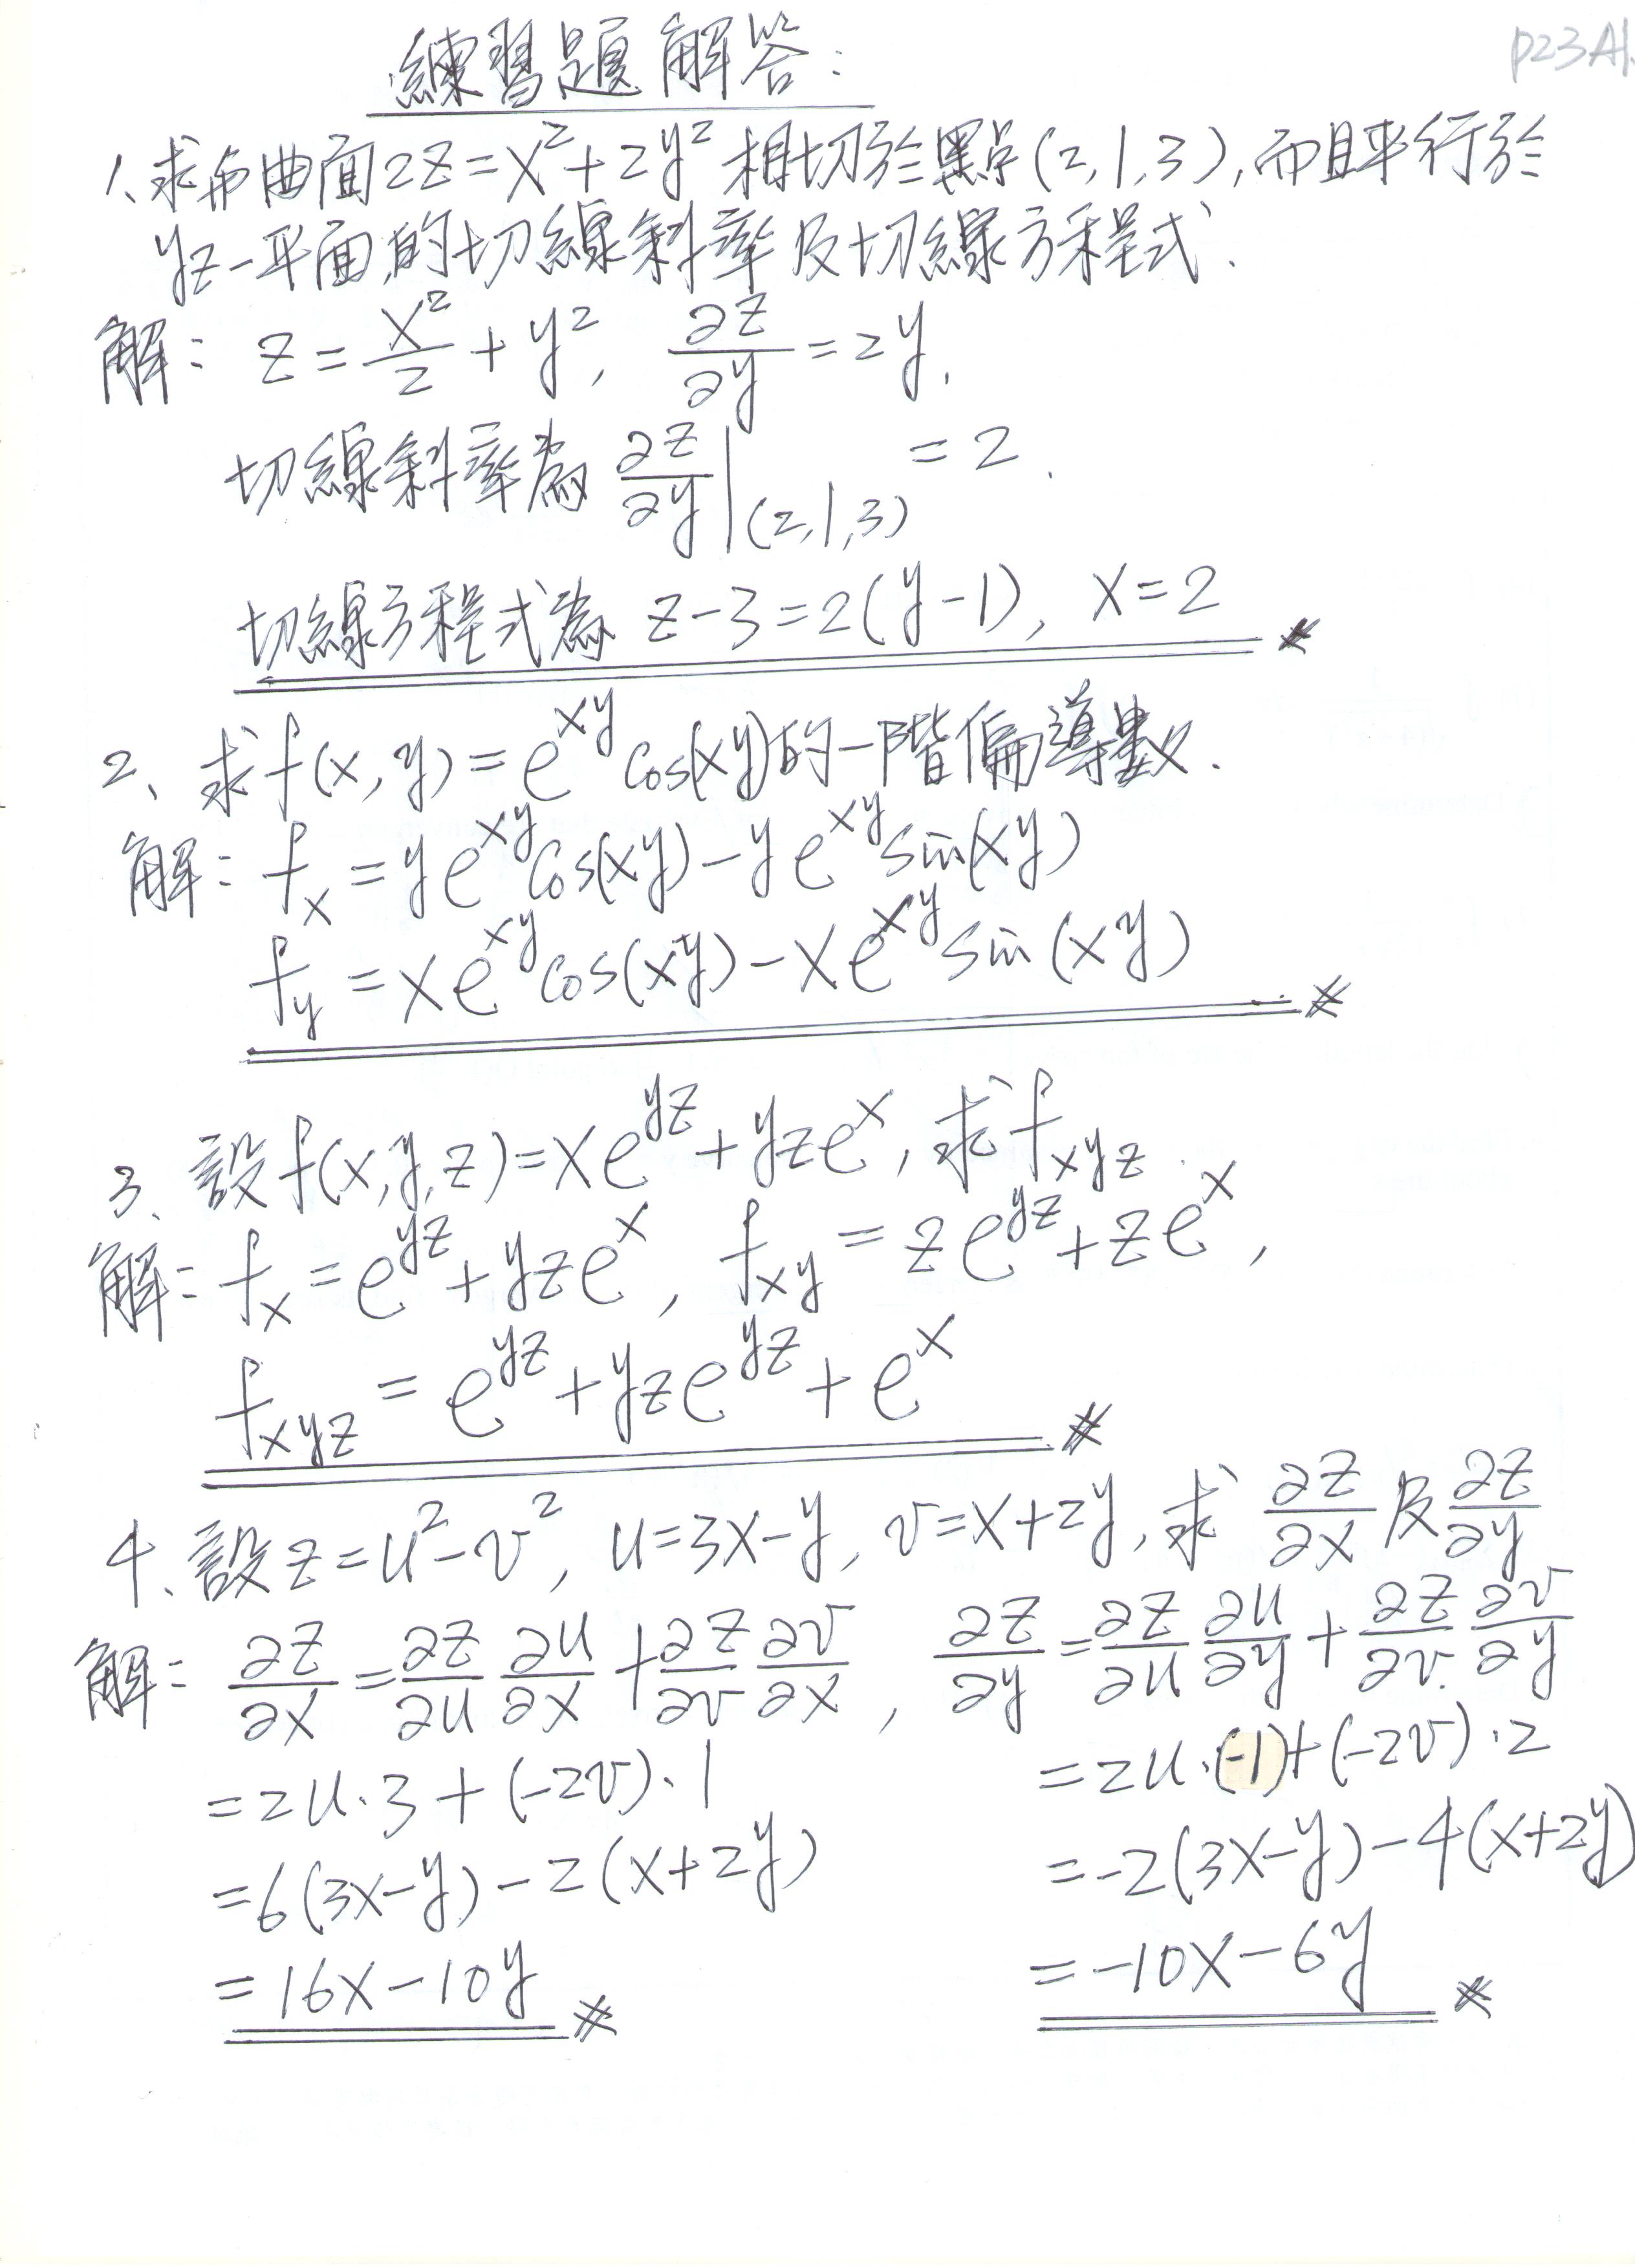 p23A1.
練習題解答:
1、求与曲面2z=x²+2y² 相切於點(2,1,3),而且平行於
yz-平面的切線斜率及切線方程式.
解: z = x²/2 + y², ∂z/∂y = 2y.
切線斜率為 ∂z/∂y|(2,1,3) = 2.
切線方程式為 z-3=2(y-1), x=2
2、求f(x,y)=e^{xy}cos(xy)的一階偏導數.
解: f_x = ye^{xy}cos(xy)-ye^{xy}sin(xy)
f_y = xe^{xy}cos(xy)-xe^{xy}sin(xy)
3、設f(x,y,z)=xe^{yz}+yze^x,求f_{xyz}.
解: f_x = e^{yz}+yze^x, f_{xy} = ze^{yz}+ze^x,
f_{xyz} = e^{yz}+yze^{yz}+e^x
4、設z=u²-v², u=3x-y, v=x+2y,求 ∂z/∂x 及 ∂z/∂y
解: ∂z/∂x = ∂z/∂u ∂u/∂x + ∂z/∂v ∂v/∂x , ∂z/∂y = ∂z/∂u ∂u/∂y + ∂z/∂v ∂v/∂y
=2u·3+(-2v)·1 =2u·(-1)+(-2v)·2
=6(3x-y)-2(x+2y) =-2(3x-y)-4(x+2y)
=16x-10y =-10x-6y